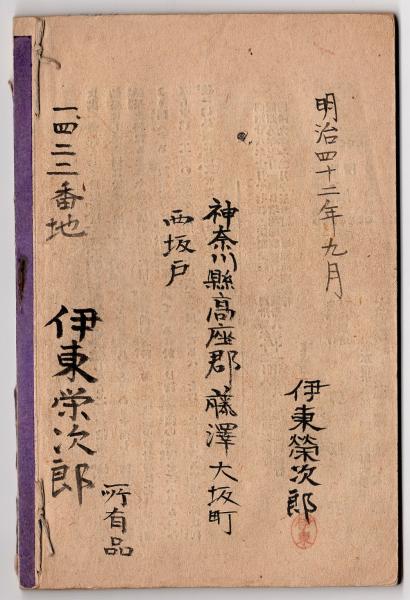 明治四十二年九月
伊東榮次郎
伊東
神奈川縣高座郡藤澤大坂町
西坂戸
一、四二二番地
伊東栄次郎
所有品